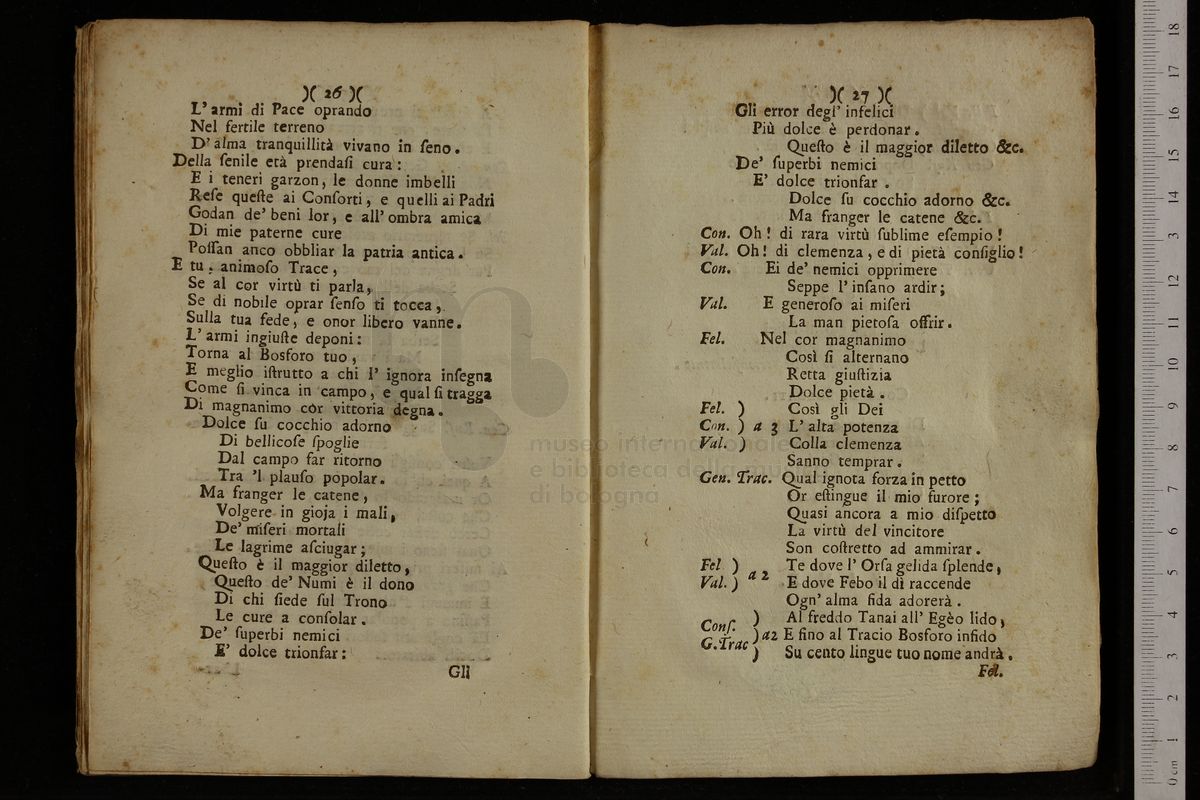 )( 26 )(
L' armi di Pace oprando
Nel fertile terreno
D' alma tranquillità vivano in ſeno.
Della ſenile età prendaſi cura:
E i teneri garzon, le donne imbelli
Reſe queſte ai Conſorti, e quelli ai Padri
Godan de' beni lor, e all' ombra amica
Di mie paterne cure
Poſſan anco obbliar la patria antica.
E tu, animoſo Trace,
Se al cor virtù ti parla,
Se di nobile oprar ſenſo ti tocca,
Sulla tua fede, e onor libero vanne.
L' armi ingiuſte deponi:
Torna al Bosforo tuo,
E meglio iſtrutto a chi l' ignora inſegna
Come ſi vinca in campo, e qual ſi tragga
Di magnanimo cor vittoria degna.
Dolce ſu cocchio adorno
Di bellicoſe ſpoglie
Dal campo far ritorno
Tra 'l plauſo popolar.
Ma franger le catene,
Volgere in gioja i mali,
De' miſeri mortali
Le lagrime aſciugar;
Queſto è il maggior diletto,
Queſto de' Numi è il dono
Di chi ſiede ſul Trono
Le cure a conſolar.
De' ſuperbi nemici
E' dolce trionfar:
Gli
)( 27 )(
Gli error degl' infelici
Più dolce è perdonar.
Queſto è il maggior diletto &c.
De' ſuperbi nemici
E' dolce trionfar.
Dolce ſu cocchio adorno &c.
Ma franger le catene &c.
Con. Oh! di rara virtù ſublime eſempio!
Val. Oh! di clemenza, e di pietà conſiglio!
Con. Ei de' nemici opprimere
Seppe l' inſano ardir;
Val. E generoſo ai miſeri
La man pietoſa offrir.
Fel. Nel cor magnanimo
Così ſi alternano
Retta giuſtizia
Dolce pietà.
Fel. ) Così gli Dei
Con. ) a 3 L' alta potenza
Val. ) Colla clemenza
Sanno temprar.
Gen. Trac. Qual ignota forza in petto
Or eſtingue il mio furore;
Quaſi ancora a mio diſpetto
La virtù del vincitore
Son coſtretto ad ammirar.
Fel ) a 2 Te dove l' Orſa gelida ſplende,
Val. ) E dove Febo il dì raccende
Ogn' alma fida adorerà.
Conſ. ) Al freddo Tanai all' Egèo lido,
G. Trac ) a2 E fino al Tracio Bosforo infido
) Su cento lingue tuo nome andrà.
Fel.
museo internazionale
e biblioteca della musica
di bologna
0 cm 1 2 3 4 5 6 7 8 9 10 11 12 13 14 15 16 17 18